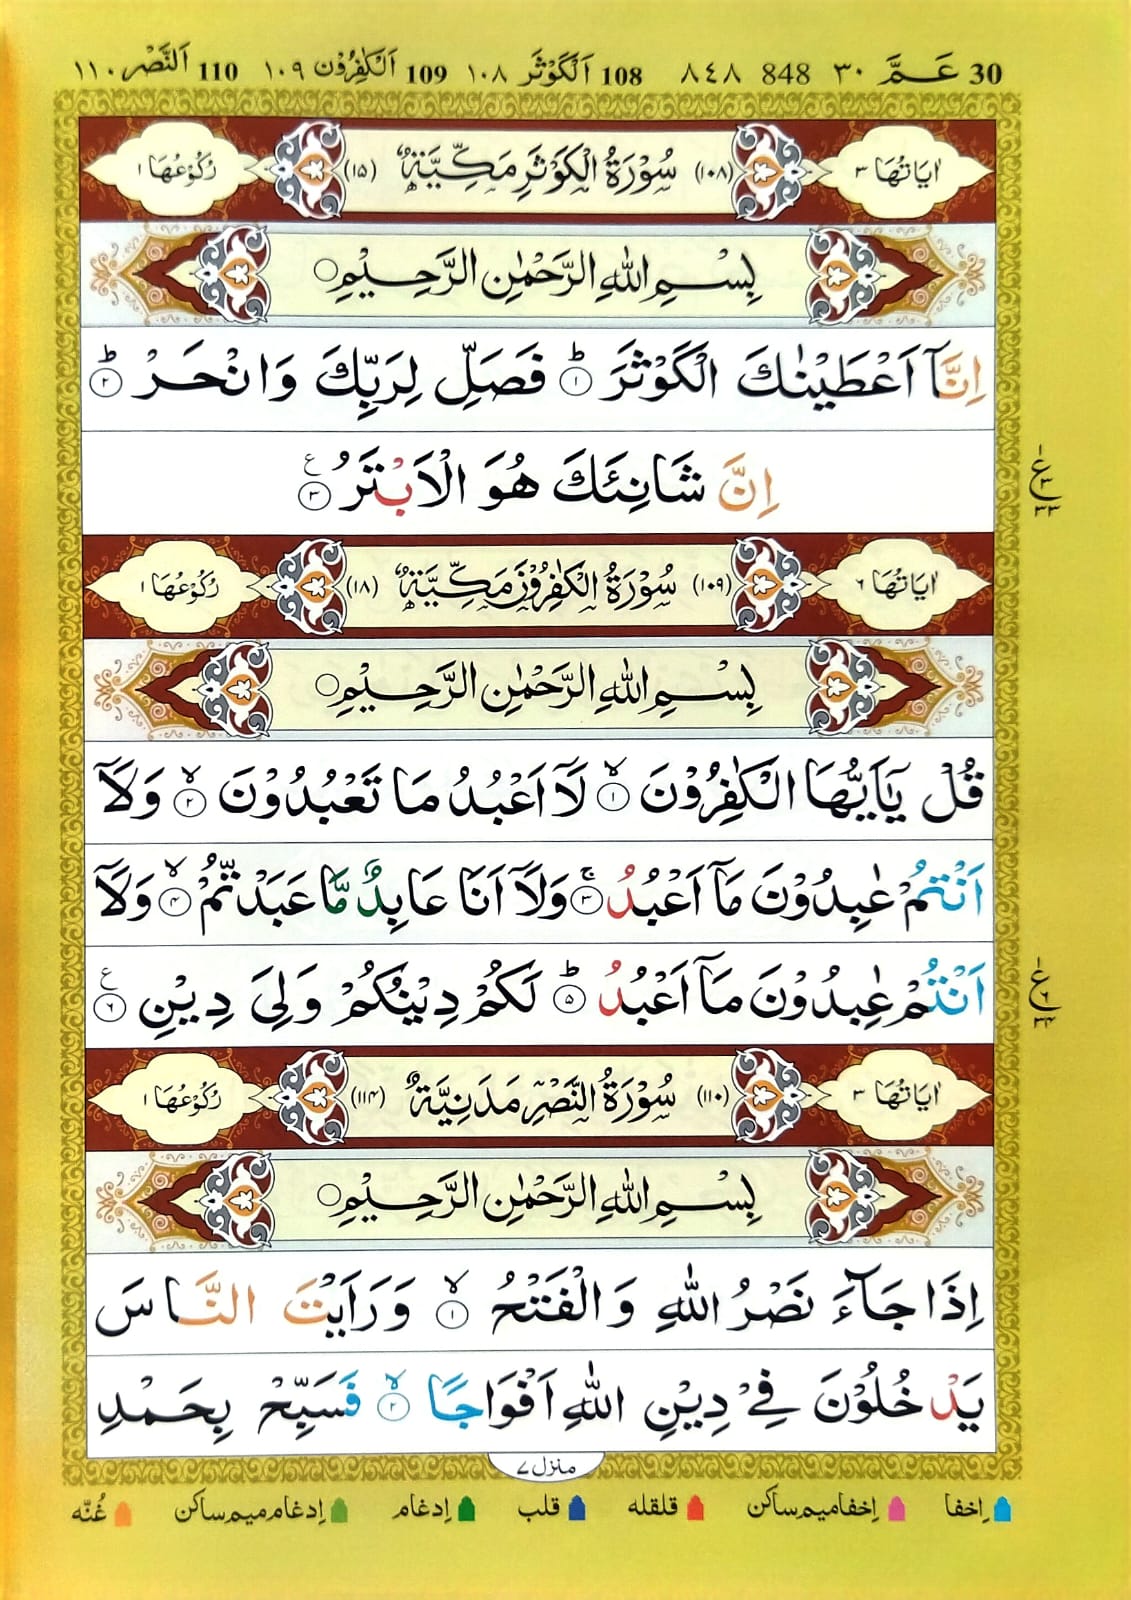 30 عَمَّ ٣٠ 848 ٨٤٨ 108 اَلْكَوْثَر ١٠٨ 109 اَلْكٰفِرُوْن ١٠٩ 110 اَلنَّصْر ١١٠
اٰيَاتُهَا ٣ (١٠٨) سُوْرَةُ الْكَوْثَرِ مَكِّيَّةٌ (١٥) رُكُوْعُهَا ١
بِسْمِ اللّٰهِ الرَّحْمٰنِ الرَّحِيْمِ
اِنَّآ اَعْطَيْنٰكَ الْكَوْثَرَ ؕ ١ فَصَلِّ لِرَبِّكَ وَانْحَرْ ؕ ٢
اِنَّ شَانِئَكَ هُوَ الْاَبْتَرُ ٣ ع
ع ٣ ٣٣
اٰيَاتُهَا ٦ (١٠٩) سُوْرَةُ الْكٰفِرُوْنَ مَكِّيَّةٌ (١٨) رُكُوْعُهَا ١
بِسْمِ اللّٰهِ الرَّحْمٰنِ الرَّحِيْمِ
قُلْ يٰٓاَيُّهَا الْكٰفِرُوْنَ ۙ ١ لَآ اَعْبُدُ مَا تَعْبُدُوْنَ ۙ ٢ وَلَآ
اَنْتُمْ عٰبِدُوْنَ مَآ اَعْبُدُ ۚ ٣ وَلَآ اَنَا عَابِدٌ مَّا عَبَدْتُّمْ ۙ ٤ وَلَآ
اَنْتُمْ عٰبِدُوْنَ مَآ اَعْبُدُ ؕ ٥ لَكُمْ دِيْنُكُمْ وَلِىَ دِيْنِ ٦ ع
ع ٦ ٣٤
اٰيَاتُهَا ٣ (١١٠) سُوْرَةُ النَّصْرِ مَدَنِيَّةٌ (١١٤) رُكُوْعُهَا ١
بِسْمِ اللّٰهِ الرَّحْمٰنِ الرَّحِيْمِ
اِذَا جَآءَ نَصْرُ اللّٰهِ وَالْفَتْحُ ۙ ١ وَرَاَيْتَ النَّاسَ
يَدْخُلُوْنَ فِىْ دِيْنِ اللّٰهِ اَفْوَاجًا ۙ ٢ فَسَبِّحْ بِحَمْدِ
منزل ٧
اِخفا اِخفا ميم ساكن قلقله قلب اِدغام اِدغام ميم ساكن غُنّه